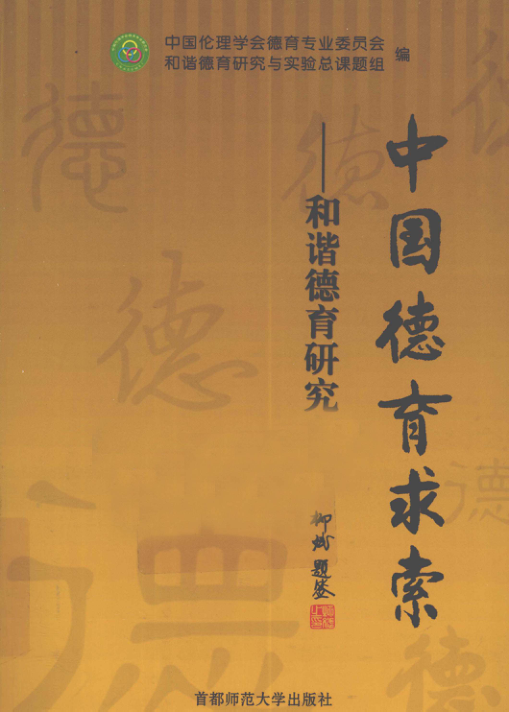 中国伦理学会德育专业委员会
和谐德育研究与实验总课题组
编
中国德育求索
——和谐德育研究
柳斌题签
首都师范大学出版社
德
德
德
德
德
德